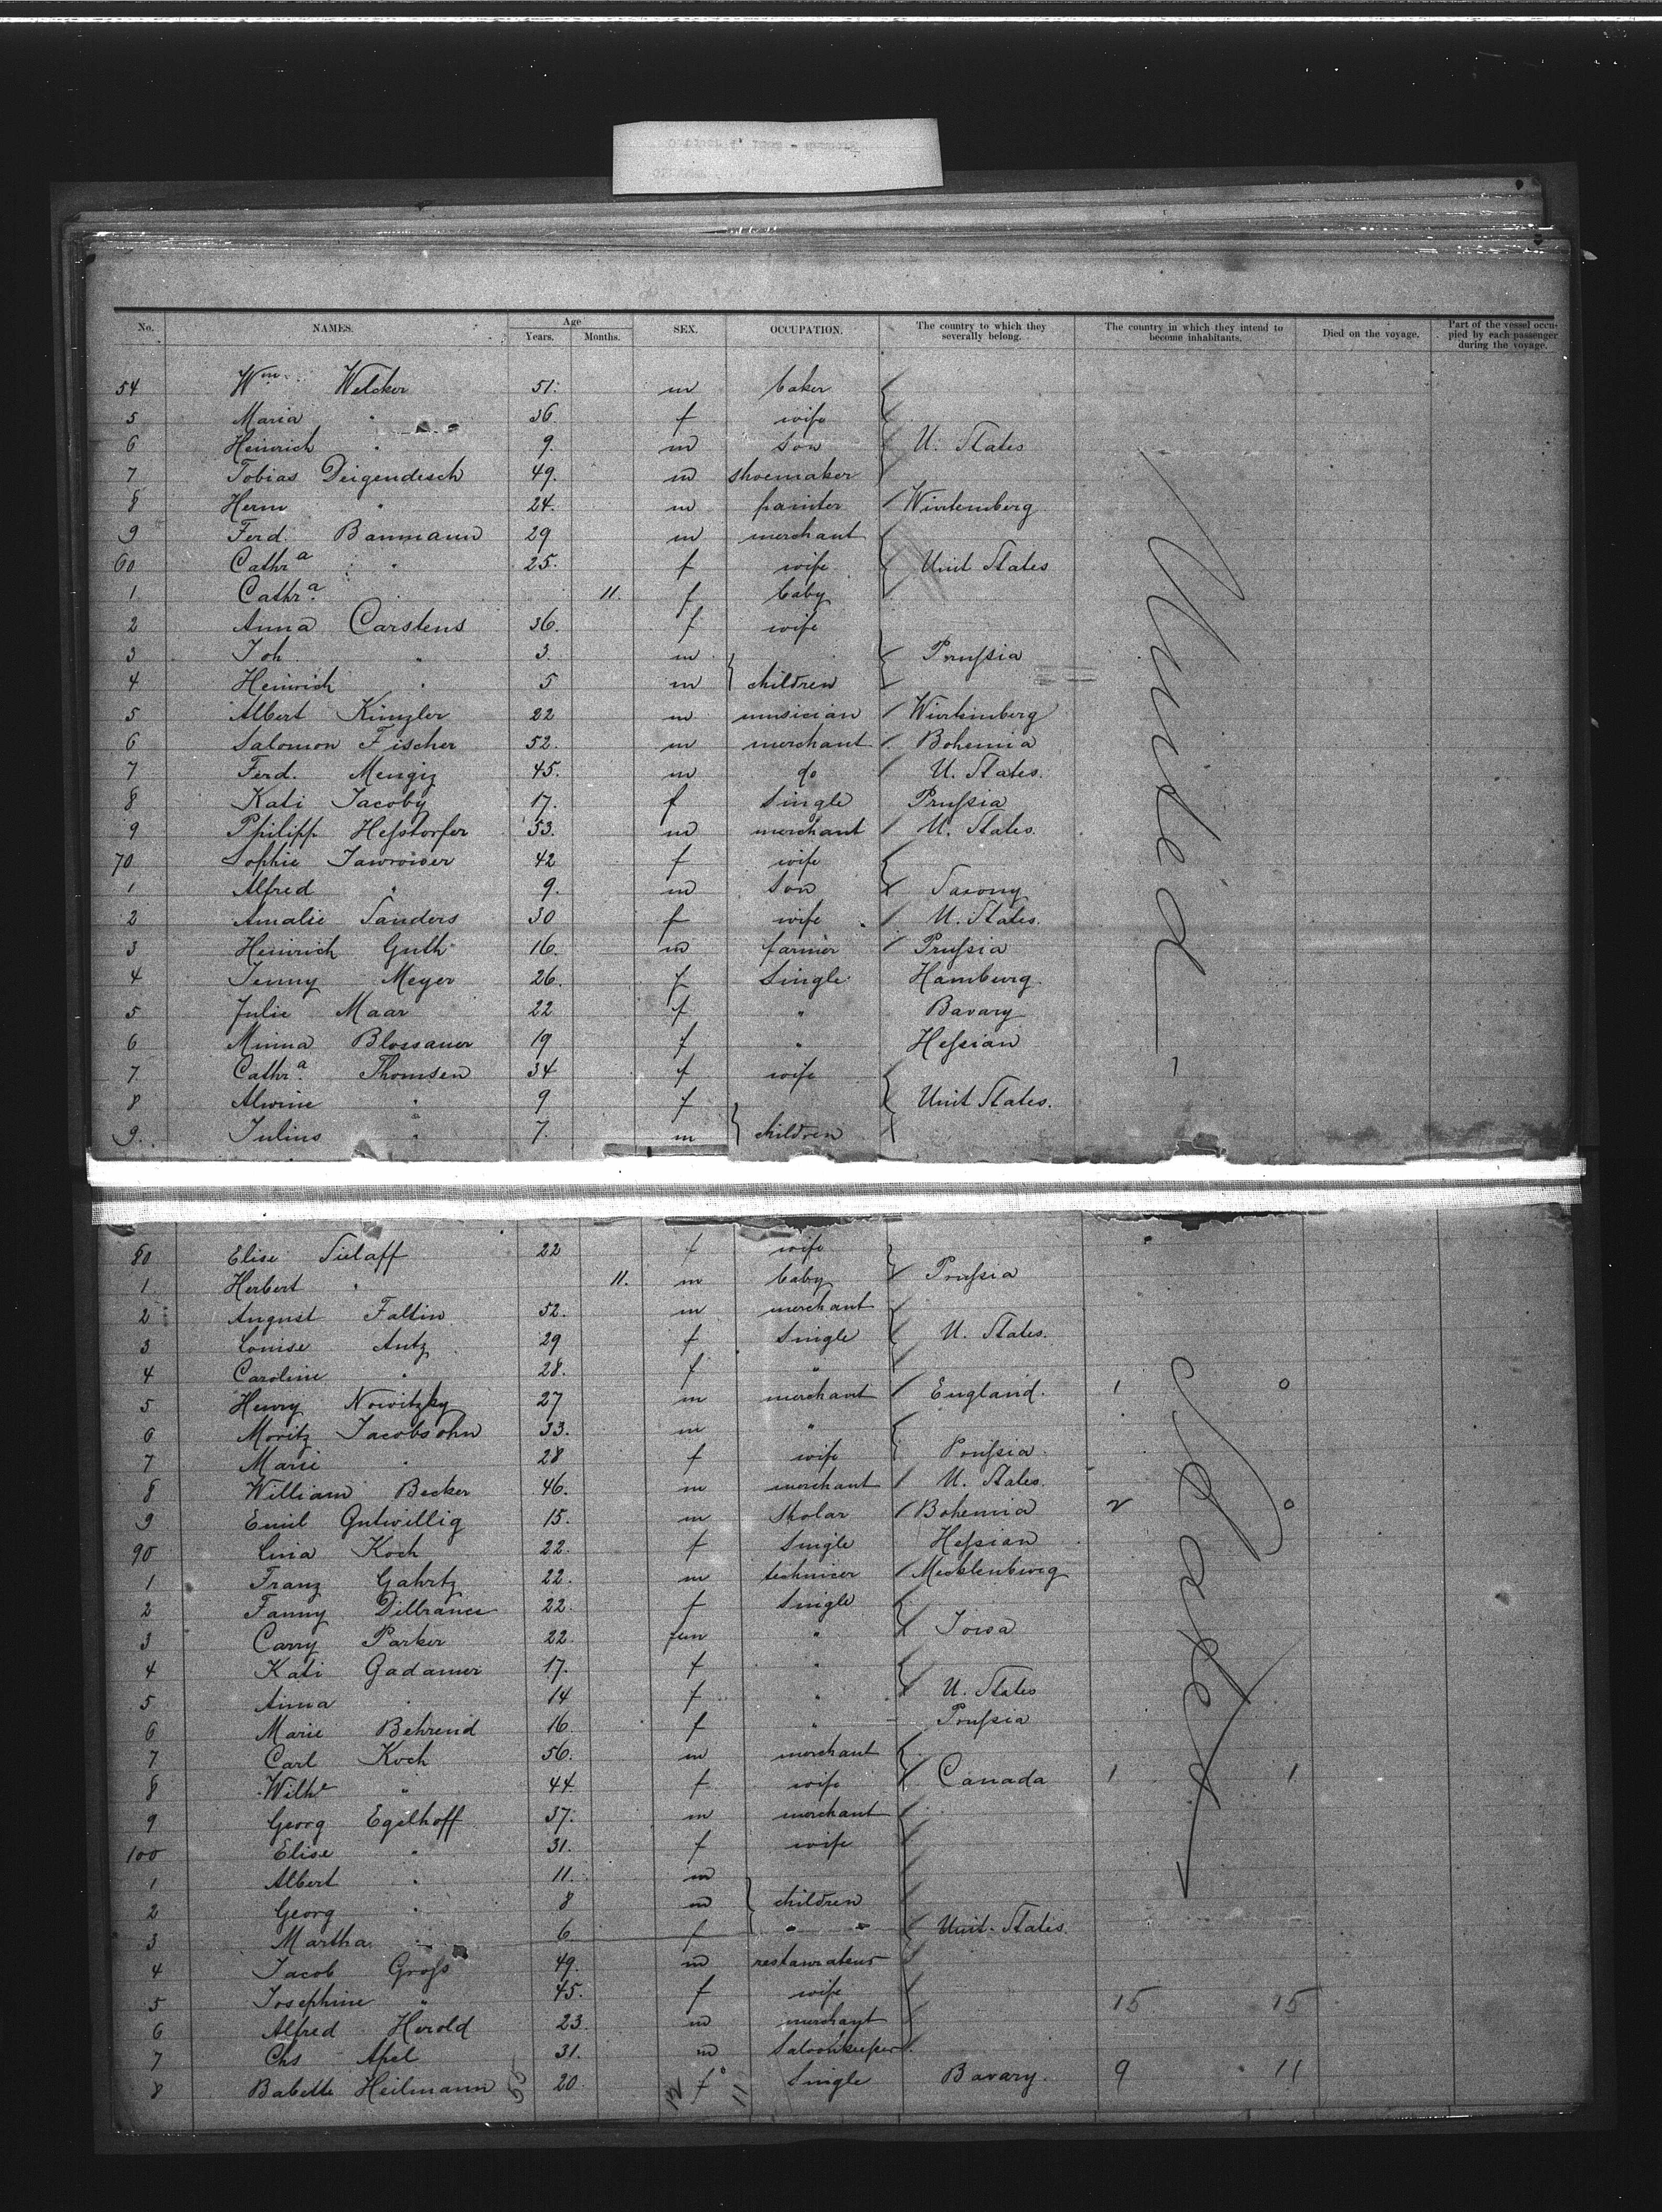 No. NAMES. Age Years. Months. SEX. OCCUPATION. The country to which they severally belong. The country in which they intend to become inhabitants. Died on the voyage. Part of the vessel occupied by each passenger during the voyage.
54 Wm. Welcker 51. m baker
5 Maria " 36. f wife
6 Heinrich " 9. m son U. States
7 Tobias Deigendesch 49. m shoemaker
8 Herm " 24. m painter Würtemberg
9 Ferd. Baumann 29 m merchant
60 Cathra " 25. f wife Unit States
1 Cathra. " 11. f baby
2 Anna Carstens 36. f wife
3 Joh " 3. m Prußia
4 Heinrich " 5 m children
5 Albert Künzler 22 m musician Würtemberg
6 Salomon Fischer 52. m merchant Bohemia
7 Ferd. Mengiz 45. m do U. States.
8 Kati Jacoby 17. f Single Prußia
9 Philipp Heßdorfer 53. m merchant U. States.
70 Sophie 42 f wife
1 Alfred " 9. m Son Saxony
2 Amalie Sanders 30 f wife U. States.
3 Heinrich Guth 16. m farmer Prußia
4 Jenny Meyer 26. f Single Hamburg
5 Julie Maar 22 f " Bavary
6 Minna Blossauer 19 f " Heßian
7. Cathra. Thomsen 34 f wife
8 Alwine " 9 f Unit States.
9. Julius " 7. m children
United
80 Elise Sielaff 22 f wife
1 Herbert " 11. m baby Prußia
2 August Faltin 52. m merchant
3 Louise Antz 29 f Single U. States.
4 Caroline " 28. f "
5 Henry Nowitzky 27 m merchant England. 1 0
6 Moritz Jacobsohn 33. m "
7 Marie " 28 f wife Prußia
8 William Becker 46. m merchant U. States.
9 Emil Gutwillig 15. m Skolar Bohemia 2 0
90 Lina Koch 22. f Single Heßian
1 Franz Gahrtz 22. m technicer Mecklenburg
2 Fanny Dilbrance 22. f Single
3 Carry Parker 22. fem " Iowa
4 Kati Gadamer 17. f "
5 Anna " 14 f " U. States
6 Marie Behrend 16. f " Prußia
7 Carl Koch 56. m merchant
8 Wilhe " 44 f wife Canada 1 1
9 Georg Egelhoff 37. m merchant
100 Elise " 31. f wife
1 Albert " 11. m
2 Georg " 8 m children
3 Martha " 6 f " " Unit. States
4 Jacob Groß 49. m restaurateur
5 Josephine " 45. f wife 15 15
6 Alfred Herold 23. m merchant
7 Chs Apel 31. m Saloonkeeper
8 Babette Heilmann 20. f Single Bavary. 9 11
55 12 11
States